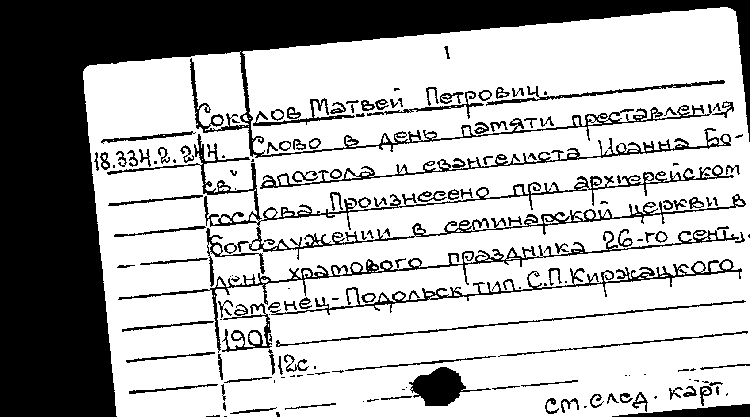 1
Соколов Матвей Петрович.
18.334.2.244. Слово в день памяти преставления
св. апостола и евангелиста Иоанна Бо-
гослова. Произнесено при архиерейском
богослужении в семинарской церкви в
день храмового праздника 26-го сент.,.
Каменец-Подольск, тип. С.П.Киржацкого,
1901.
12с.
см. след. карт.